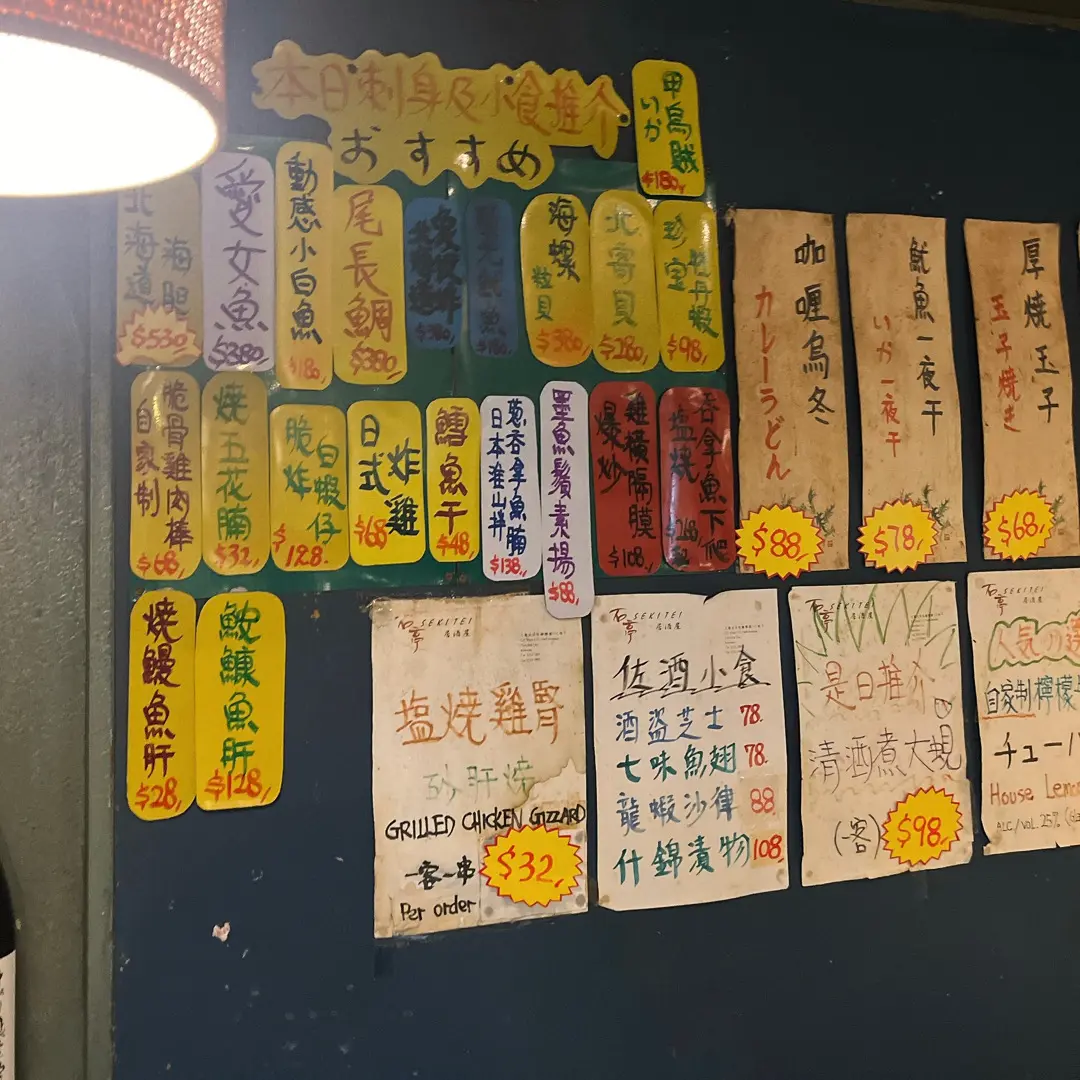 本日刺身及小食推介
おすすめ
甲烏賊
いか
$180,
北海道
海胆
$530,
愛女魚
$380,
動感小白魚
$180,
尾長鯛
$380,
$380,
$180,
海螺
粒貝
$380,
北寄貝
$280,
珍宝
牡丹蝦
$98,
脆骨雞肉棒
自家制
$68,
焼五花腩
$32,
脆炸
白蝦仔
$128.
日式
炸雞
$68,
鱈魚干
$48,
葱吞拿魚腩
日本淮山拼
$138,,
墨魚鬚素揚
$88,
雞橫膈膜
爆炒
$108,,
吞拿魚下爬
塩焼
咖喱烏冬
カレーうどん
$88,,
魷魚一夜干
いか一夜干
$78,
厚焼玉子
玉子焼き
$68,
焼鰻魚肝
$28,
鮟鱇魚肝
$128,
石亭 SEKITEI
居酒屋
塩焼雞腎
砂肝焼
GRILLED CHICKEN GIZZARD
一客一串
Per order
$32,
石亭 SEKITEI
居酒屋
佐酒小食
酒盗芝士 78.
七味魚翅 78.
龍蝦沙律 88
什錦漬物 108,
石亭 SEKITEI
居酒屋
是日推介
清酒煮大蜆
(一客)
$98,
石亭 SEKITEI
居酒屋
人気の
自家制檸檬
チューハ
House Lemo
ALC./VOL. 25%